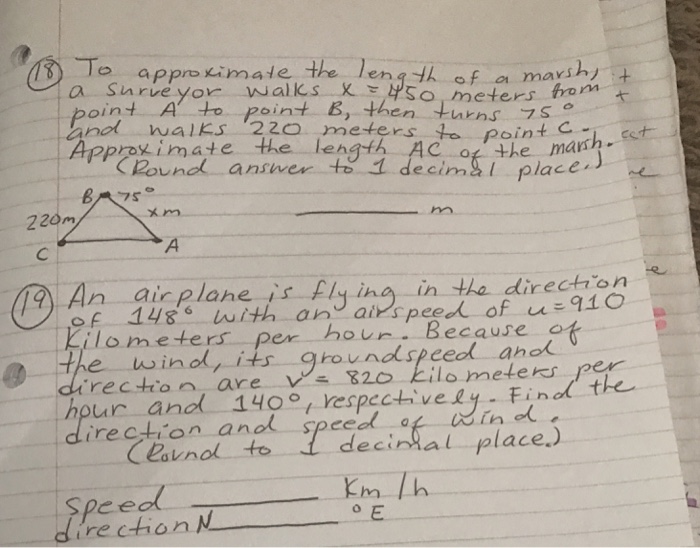 (18) To approximate the length of a marsh,
a surveyor walks x = 450 meters from
point A to point B, then turns 75°
and walks 220 meters to point C.
Approximate the length AC of the marsh.
(Round answer to 1 decimal place.)
B 75°
220m x m
C A
______ m
(19) An airplane is flying in the direction
of 148° with an airspeed of u=910
kilometers per hour. Because of
the wind, its groundspeed and
direction are v = 820 kilometers per
hour and 140°, respectively. Find the
direction and speed of wind.
(Round to 1 decimal place.)
speed ______ Km/h
direction N ______ ° E